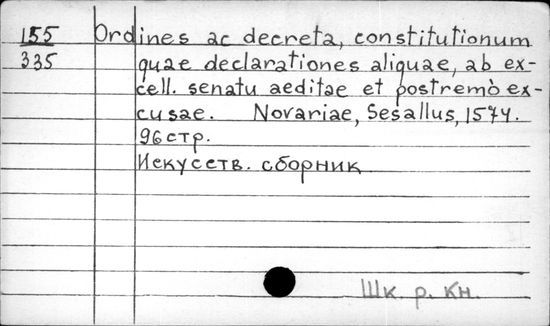 155 Ordines ac decreta, constitutionum
335 quae declarationes aliquae, ab ex-
cell. senatu aeditae et postremò ex-
cusae. Novariae, Sesallus, 1574.
96 стр.
Искусств. сборник
Шк. р. кн.